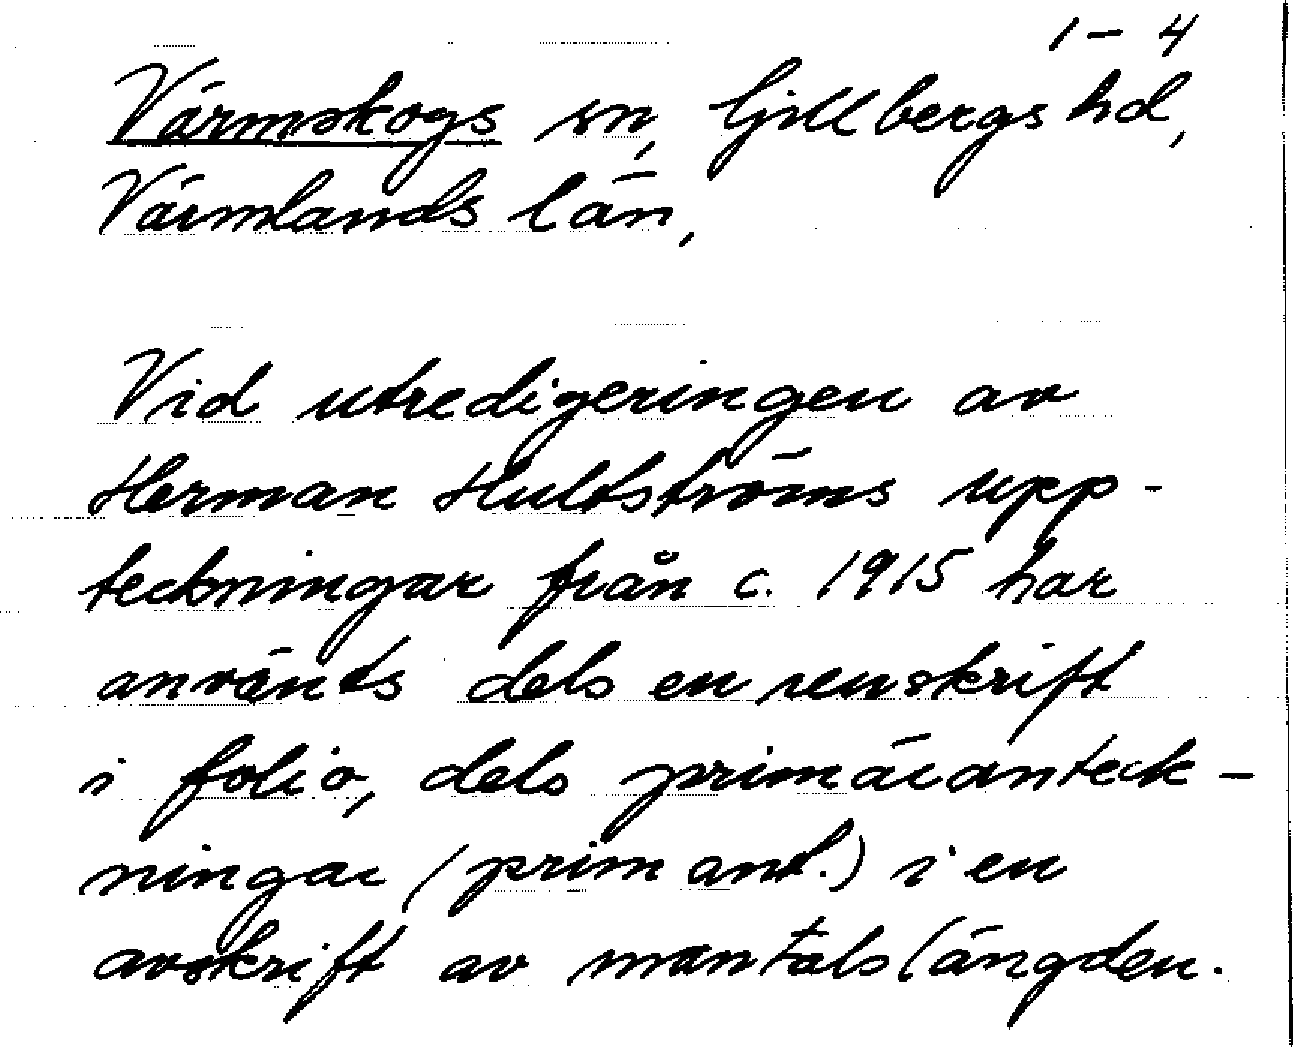 1-4
Värmskogs sn, Gillbergs hd,
Värmlands län,
Vid utredigeringen av
Herman Hultströms upp-
teckningar från c. 1915 har
använts dels en renskrift
i folio, dels primäranteck-
ningar (primant.) i en
avskrift av mantalslängden.